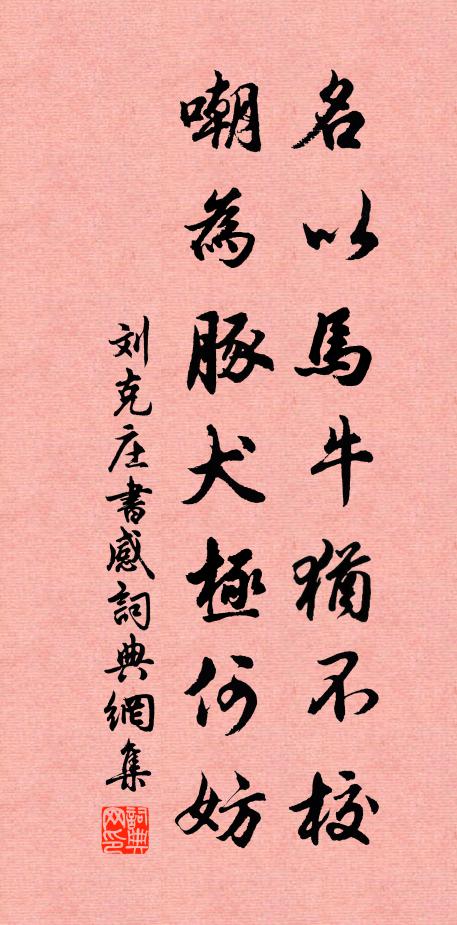 名以馬牛猶不校
嘲為豚犬極何妨
刘克庄書感詞典網集
詞典网印